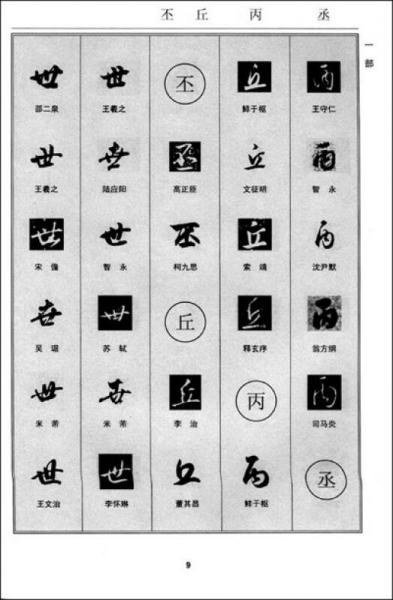 丕 丘 丙 丞
一部
世 世 丕 丘 丙
邵二泉 王羲之 鲜于枢 王守仁
世 世 丕 丘 丙
王羲之 陆应阳 高正臣 文征明 智永
世 世 丕 丘 丙
宋儋 智永 柯九思 索靖 沈尹默
世 世 丘 丘 丙
吴琚 苏轼 释玄序 翁方纲
世 世 丘 丙 丙
米芾 米芾 李治 司马炎
世 世 丘 丙 丞
王文治 李怀琳 董其昌 鲜于枢
9